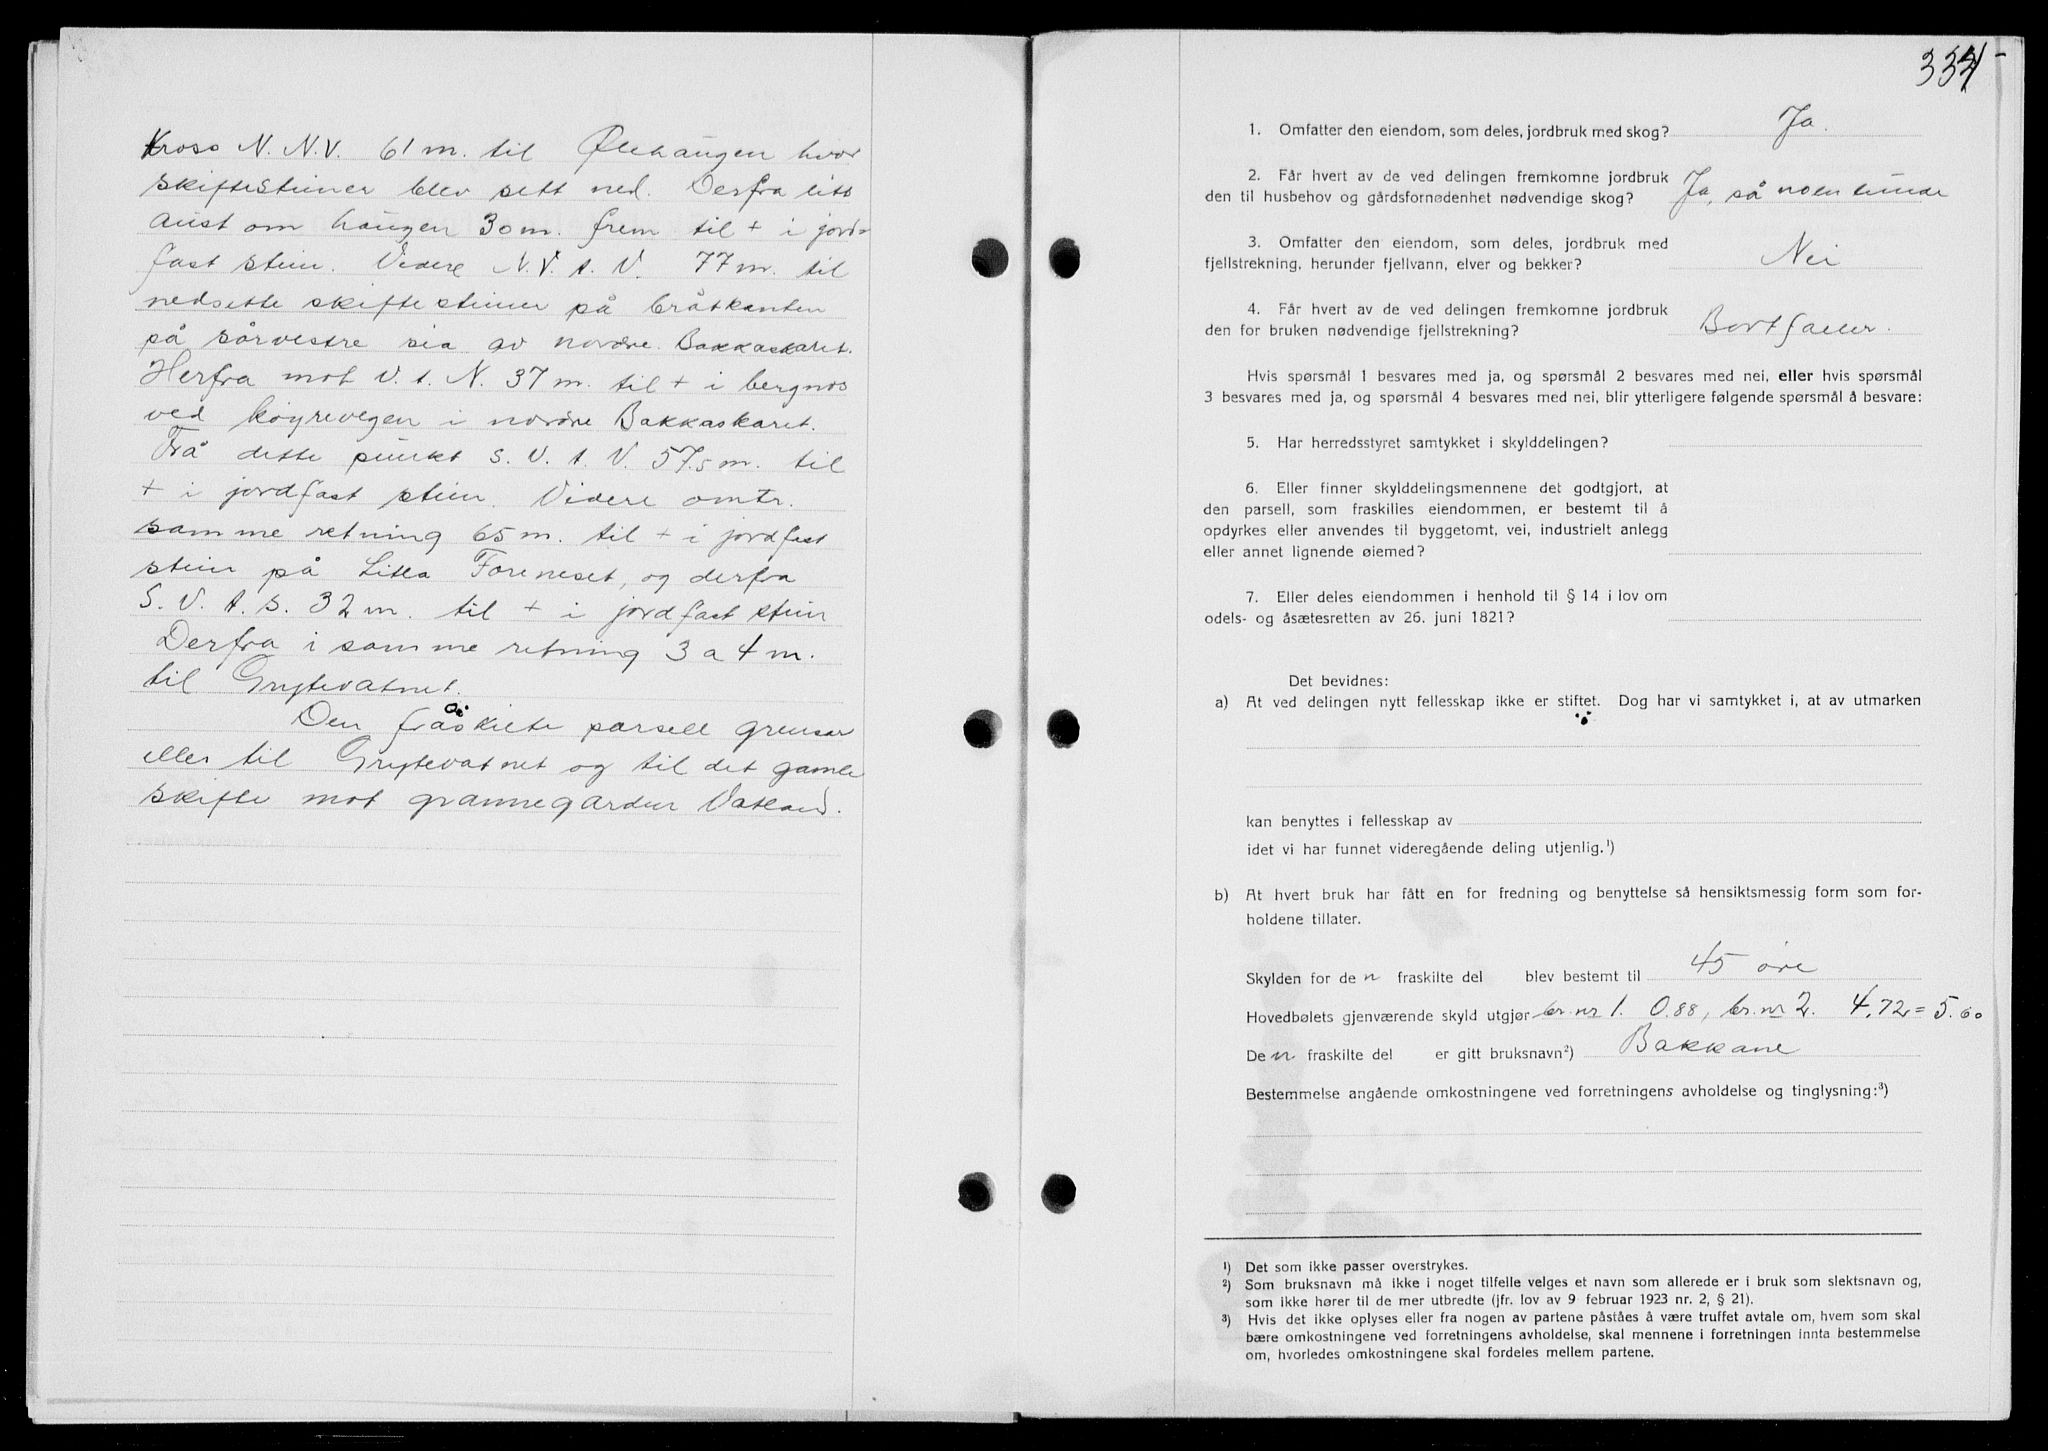 Kross N. N.V. 61 m. til Ølehaugen hvor
skiftesteiner blev sett ned. Derfra litt
aust om haugen 30 m. frem til + i jord-
fast stein. Videre N.V. t. V. 77 m. til
nedsette skiftesteiner på bråtkanten
på sørvestre sia av nordre Bakkaskaret.
Herfra mot V. t. N. 37 m. til + i bergnos
ved køyrevegen i nordre Bakkaskaret.
Frå dette punkt S. V. t. V. 57.5 m. til
+ i jordfast stein. Videre omtr.
samme retning 65 m. til + i jordfast
stein på Litla Foreneset, og derfra
S. V. t. S. 32 m. til + i jordfast stein
Derfra i samme retning 3 a 4 m.
til Grytevatnet.
Den fråskilte parsell grensar
elles til Grytevatnet og til det gamle
skifte mot grannegarden Vatland.
334
1. Omfatter den eiendom, som deles, jordbruk med skog? Ja.
2. Får hvert av de ved delingen fremkomne jordbruk
den til husbehov og gårdsfornødenhet nødvendige skog? Ja, så noenlunde
3. Omfatter den eiendom, som deles, jordbruk med
fjellstrekning, herunder fjellvann, elver og bekker? Nei
4. Får hvert av de ved delingen fremkomne jordbruk
den for bruken nødvendige fjellstrekning? Bortfaller.
Hvis spørsmål 1 besvares med ja, og spørsmål 2 besvares med nei, eller hvis spørsmål
3 besvares med ja, og spørsmål 4 besvares med nei, blir ytterligere følgende spørsmål å besvare:
5. Har herredsstyret samtykket i skylddelingen?
6. Eller finner skylddelingsmennene det godtgjort, at
den parsell, som fraskilles eiendommen, er bestemt til å
opdyrkes eller anvendes til byggetomt, vei, industrielt anlegg
eller annet lignende øiemed?
7. Eller deles eiendommen i henhold til § 14 i lov om
odels- og åsætesretten av 26. juni 1821?
Det bevidnes:
a) At ved delingen nytt fellesskap ikke er stiftet. Dog har vi samtykket i, at av utmarken
kan benyttes i fellesskap av
idet vi har funnet videregående deling utjenlig.¹)
b) At hvert bruk har fått en for fredning og benyttelse så hensiktsmessig form som for-
holdene tillater.
Skylden for de n fraskilte del blev bestemt til 45 øre
Hovedbølets gjenværende skyld utgjør br. nr 1. 0.88, br. nr 2. 4,72 = 5.60
De n fraskilte del er gitt bruksnavn²) Bakkane
Bestemmelse angående omkostningene ved forretningens avholdelse og tinglysning:³)
¹) Det som ikke passer overstrykes.
²) Som bruksnavn må ikke i noget tilfelle velges et navn som allerede er i bruk som slektsnavn og,
som ikke hører til de mer utbredte (jfr. lov av 9 februar 1923 nr. 2, § 21).
³) Hvis det ikke oplyses eller fra nogen av partene påståes å være truffet avtale om, hvem som skal
bære omkostningene ved forretningens avholdelse, skal mennene i forretningen innta bestemmelse
om, hvorledes omkostningene skal fordeles mellem partene.